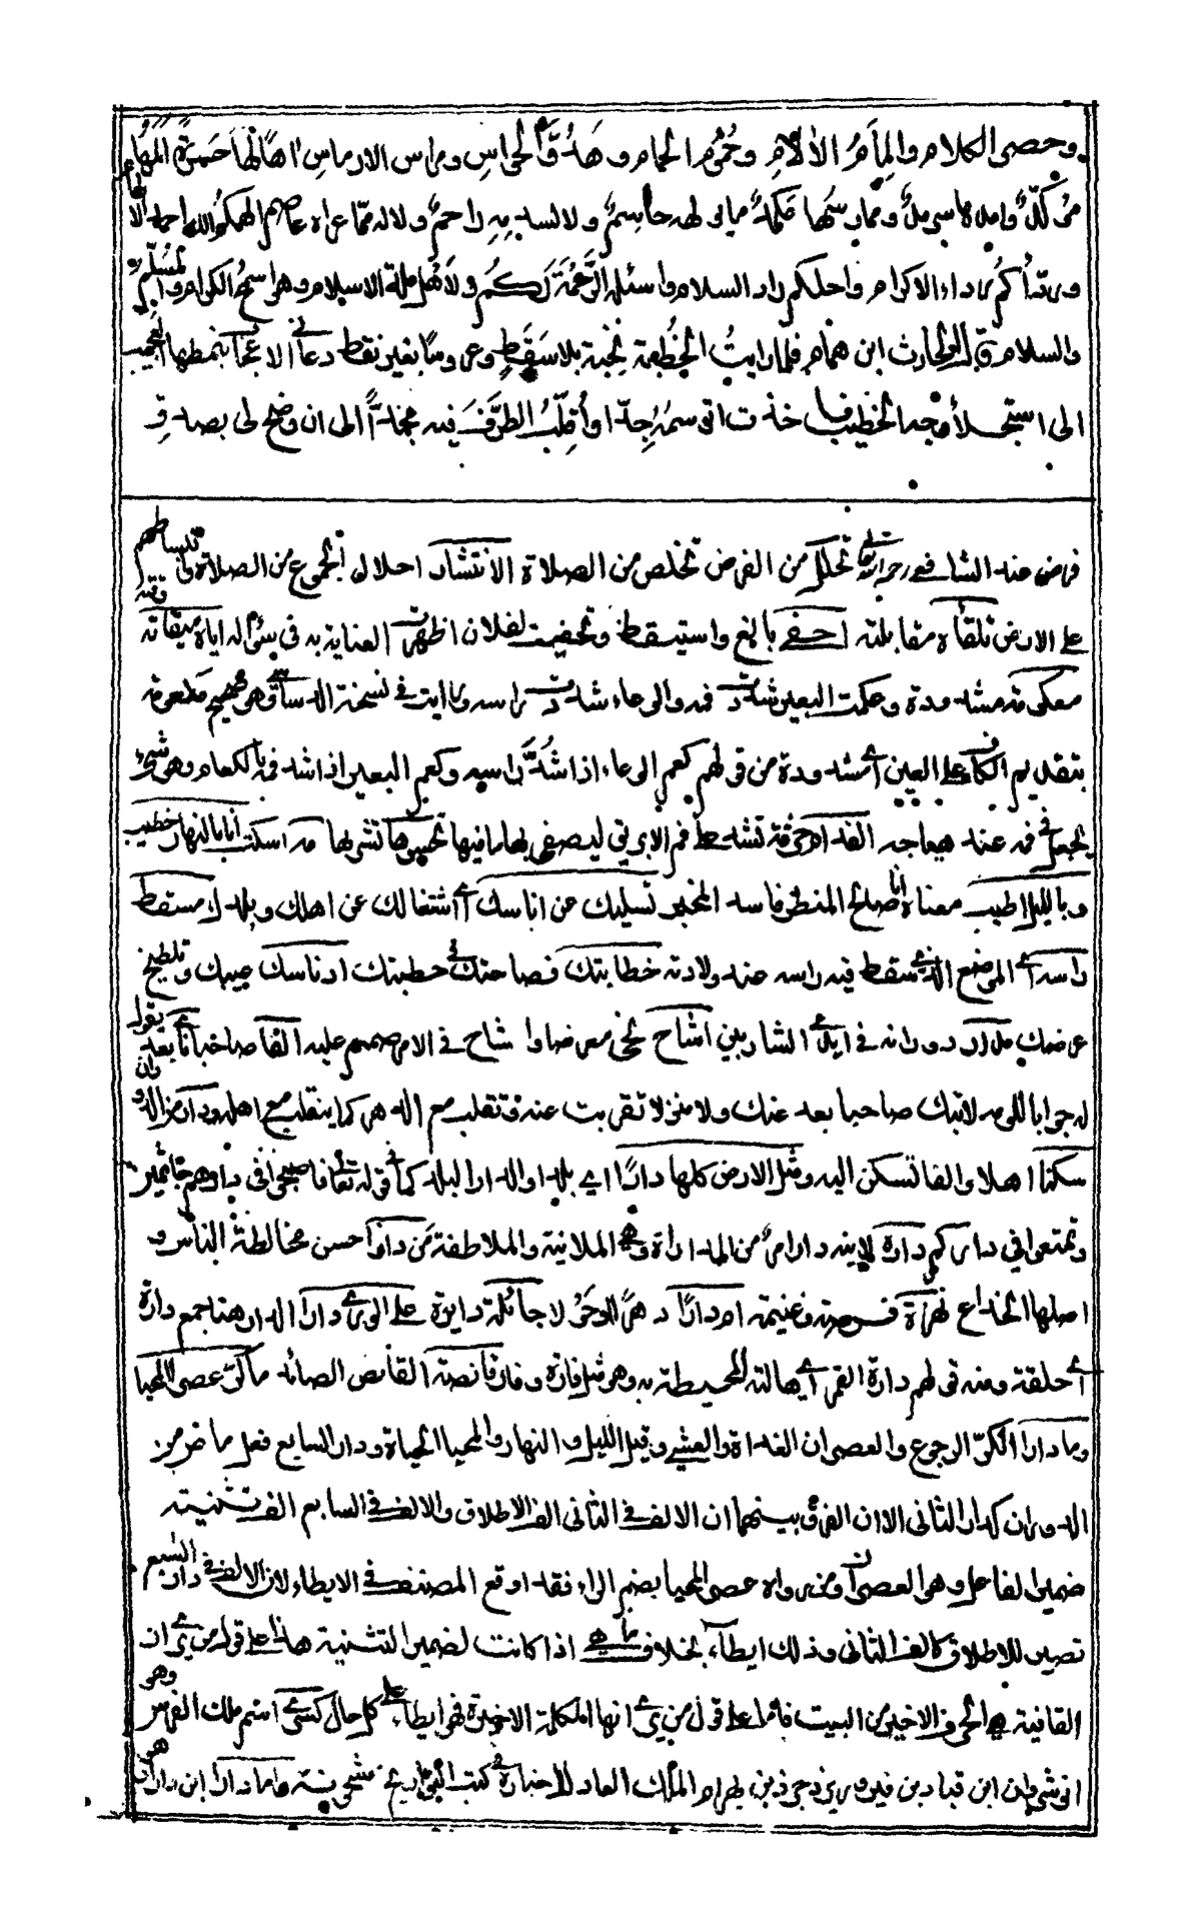 وحصى الكلام والمأم الآلام وحموم الحمام وهدو الحواس ومراس الارماس اهاً لها حسرة المها
من كلٌ وامله ما سرمدٌ وممارسها مكمدٌ مالولهه حاسمٌ ولا لسدمه راحمٌ ولا له مما عراه عاصم الهمكم الله احمد الا
ورداكم رداء الاكرام واحلكم دار السلام واسئله الرحمة لكم ولاهل ملة الاسلام وهو اسمح الكرام والمسلم
والسلام قال الحارث ابن همام فلما رايت الخطبة نخبة بلا سقط وعروسا بغير نقط دعاني الاعجاب بنمطها العجيب
الى استجلاء وجه الخطيب فاخذت اتوسمه جدا واقلب الطرف فيه مجدا الى ان وضح لى بصدق
فرض عند الشافعى رحمه الله تعالى تحلل من الفرض تخلص من الصلاة الانتشار احلال الجموع من الصلاة
على الارض تلقاه مقابلته احفى بالغ واستسقط وتحفيت لفلان اظهرت العناية به فى سؤاله اياه ميقاته
معكومة مشدودة وعكمت البعير شددت فمه والوعاء شددت راسه ورايت فى نسخة
بتقديم الكاف على العين اى مشدودة من قولهم كعم الوعاء اذا شد راسه وكعم البعير اذا شد فمه بالكعام وهو شئ
يجعل فى فمه عند هيعاجه الفدام خرقة تشد على فم الابريق ليصفى بها ما فيها تحسوها تشربها اسكت انا بالنهار خطيب
وبالليل اطيب معناه انا صالح المنظر فاسد المخبر تسليك عن اناسك اى اشتغالك عن اهلك وبلدك ومسقط
راسه اى الموضع الذى سقط فيه راسه عند ولادته خطابتك فصاحتك فى خطبتك ادناسك عيبك وتلطيخ
عرضك مدار دورانه فى ايدى الشاربين اشاح نحى معرضا واشاح فى الامر صمم عليه الفا صاحبا ناى بعد يقول
له جوابا للومه لاتبك صاحبا بعد عنك ولا منزلا تقربت عنه وتقلب مع الدهر كما ينقلب مع اهله ودار من الدوران
سكنا اهلا والفا تسكن اليه ومثل الارض كلها دارا اى بلدا والدار البلد كما فى قوله تعالى فاصبحوا فى دارهم جاثمين
وتمتعوا فى داركم داره لاينه دار امر من المداراة وهى الملاينة والملاطفة من دارا حسن مخالطة الناس و
اصلها الخداع نهزة فرصة وغنيمة ام دارا دهرا او حولا جائلة دايرة على الورى دارا الدار هنا جمع دارة
اى حلقة ومنه قولهم دارة القمر اى هالته المحيطة به وهو مثل قارة وقار قانصة القانص الصائد ما كر عصرى المحيا
وما دارا الكر الرجوع والعصران الغداة والعشى وقيل الليل والنهار والمحيا الحياة ودار السابع فعل ماض من
الدوران كدار الثانى الا ان الفرق بينهما ان الالف فى الثانى الف الاطلاق والالف فى السابع الف تثنية
ضمير الفاعل وهو العصران ومن رواه عصر المحيا بضم الراء فقد اوقع المصنف فى الايطاء لان الالف فى دار السبع
تصير للاطلاق كالف الثانى وذلك ايطاء بخلاف ما هى اذا كانت لضمير التثنية هذا على قول من يرى ان
القافية هى الحرف الاخير من البيت فاما على قول من يرى انها الكلمة الاخيرة فهو ايطاء على كل حال كسرى اسم ملك الفرس وهو
انوشروان ابن قباد بن فيروز بن يزدجرد بن بهرام الملك العادل اخباره فى كتب التواريخ مشحونة واما دارا ابن دارا